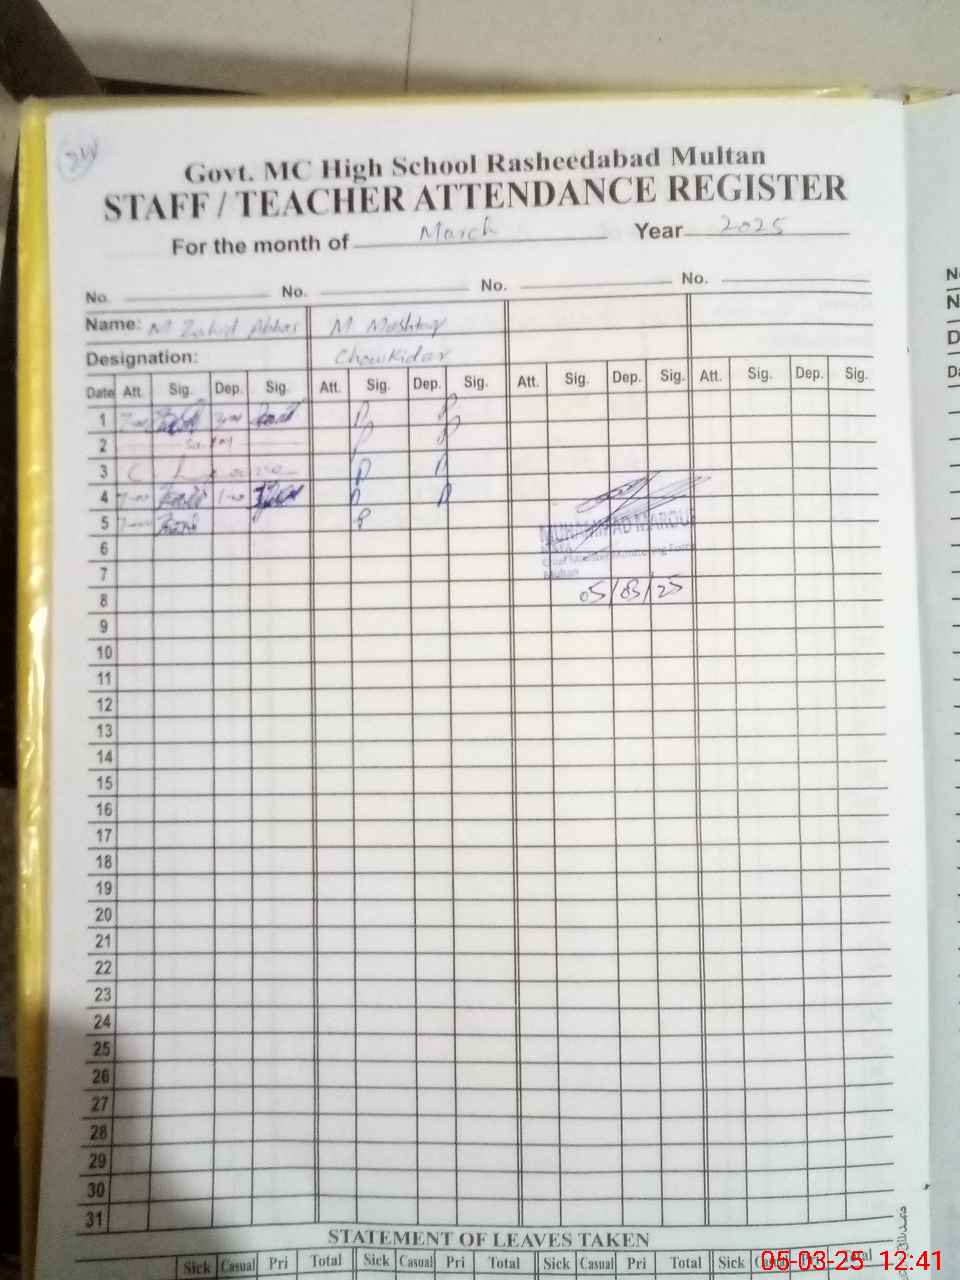 Govt. MC High School Rasheedabad Multan
STAFF / TEACHER ATTENDANCE REGISTER
For the month of March Year 2025
No. No. No. No.
Name: M Zahid Abbas M Mushtaq
Designation: Chowkidar
Date Att. Sig. Dep. Sig. Att. Sig. Dep. Sig. Att. Sig. Dep. Sig. Att. Sig. Dep. Sig.
1 P P
2 P P
3 C Leave P P
4 7-00 1-00 P P
5 7-00 P
MUHAMMAD MAROUF
6
7
Multan
8 05/03/25
9
10
11
12
13
14
15
16
17
18
19
20
21
22
23
24
25
26
27
28
29
30
31
STATEMENT OF LEAVES TAKEN
Sick Casual Pri Total Sick Casual Pri Total Sick Casual Pri Total Sick Casual Pri Total
05-03-25 12:41